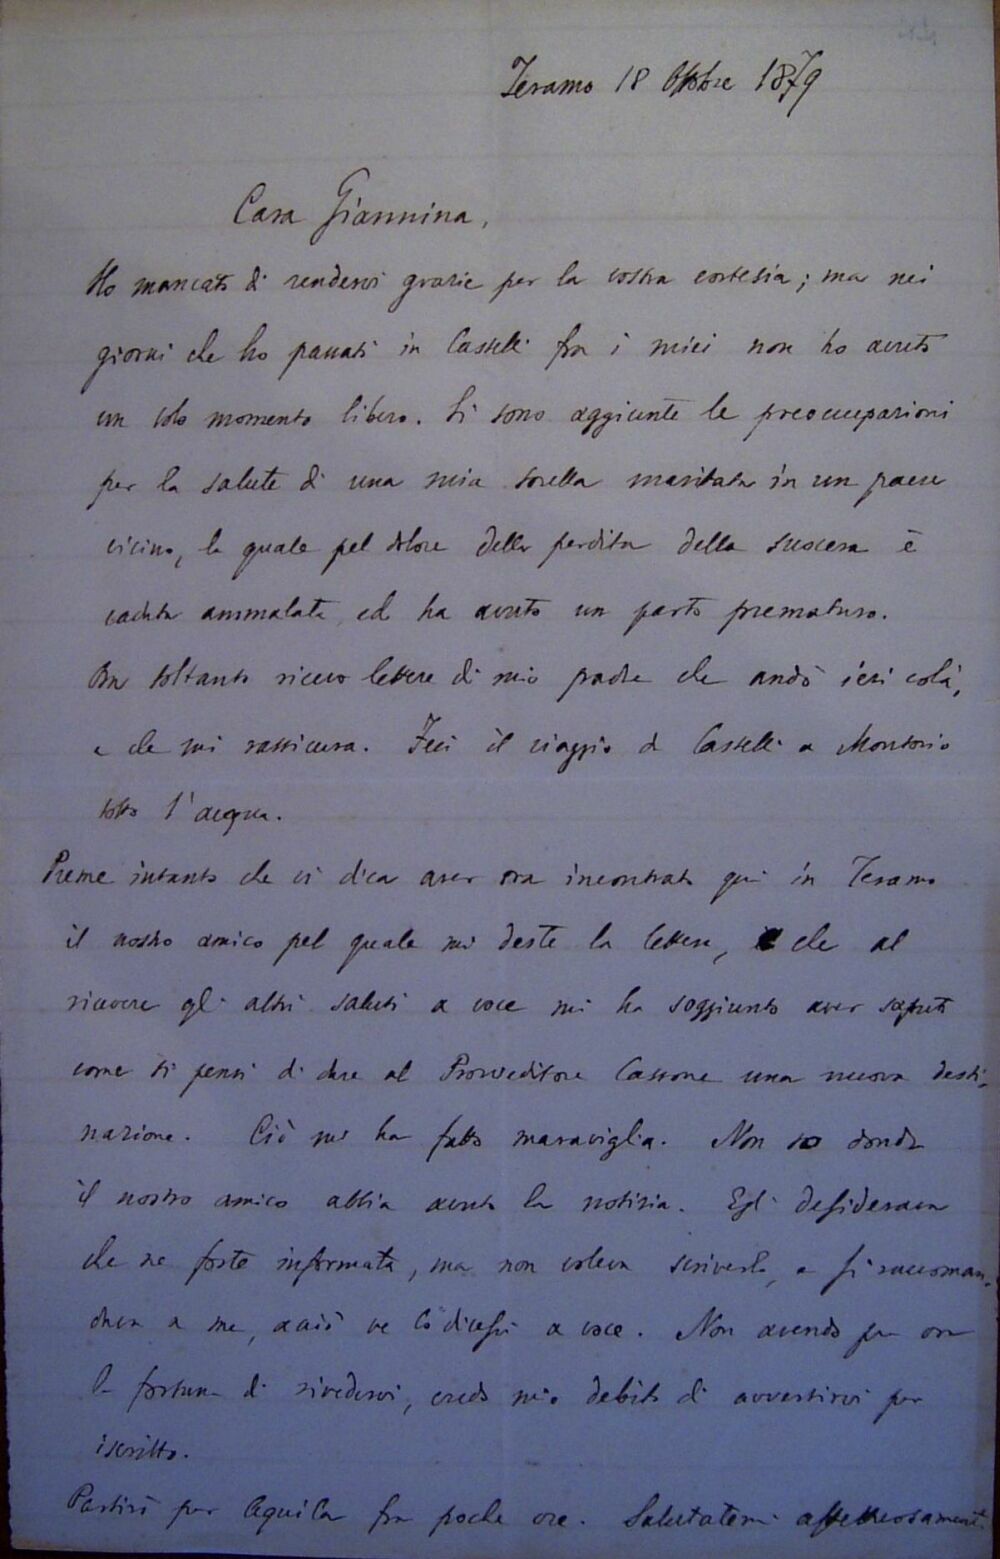 Teramo 18 Ottobre 1879
Cara Giannina,
Ho mancato di rendervi grazie per la vostra cortesia; ma nei
giorni che ho passati in Castelli fra i miei non ho avuto
un solo momento libero. Si sono aggiunte le preoccupazioni
per la salute di una mia sorella maritata in un paese
vicino, la quale pel dolore della perdita della suocera è
caduta ammalata, ed ha avuto un parto prematuro.
Ora soltanto ricevo lettere di mio padre che andò ieri colà,
e che mi rassicura. Feci il viaggio da Castelli a Montorio
sotto l'acqua.
Preme intanto che vi dica aver ora incontrato qui in Teramo
il nostro amico pel quale mi deste la lettera, che al
ricevere gli altri saluti a voce mi ha soggiunto aver saputo
come si pensi di dare al Provveditore Cassone una nuova desti-
nazione. Ciò mi ha fatto maraviglia. Non so donde
il nostro amico abbia avuto la notizia. Egli desiderava
che ne foste informata, ma non voleva scriverlo, e si raccoman-
dava a me, acciò ve lo dicessi a voce. Non avendo per ora
la fortuna di rivedervi, credo mio debito di avvertirvi per
iscritto.
Partirò per Aquila fra poche ore. Salutatemi affettuosamente